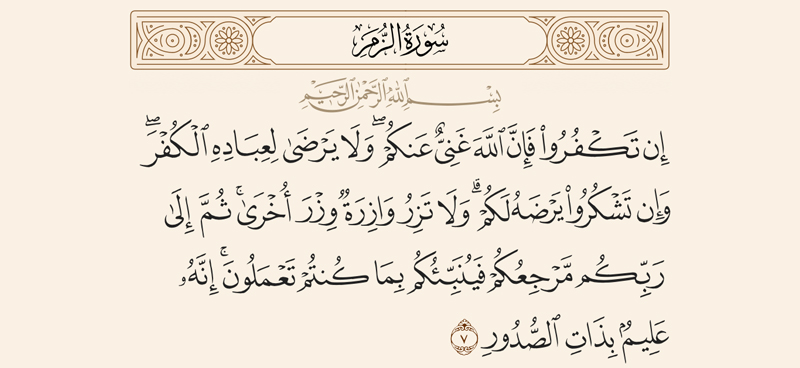 سُورَةُ الزُّمَرِ
بِسْمِ ٱللَّهِ ٱلرَّحْمَٰنِ ٱلرَّحِيمِ
إِن تَكْفُرُوا۟ فَإِنَّ ٱللَّهَ غَنِىٌّ عَنكُمْ ۖ وَلَا يَرْضَىٰ لِعِبَادِهِ ٱلْكُفْرَ ۖ
وَإِن تَشْكُرُوا۟ يَرْضَهُ لَكُمْ ۗ وَلَا تَزِرُ وَازِرَةٌ وِزْرَ أُخْرَىٰ ۚ ثُمَّ إِلَىٰ
رَبِّكُم مَّرْجِعُكُمْ فَيُنَبِّئُكُم بِمَا كُنتُمْ تَعْمَلُونَ ۚ إِنَّهُۥ
عَلِيمٌۢ بِذَاتِ ٱلصُّدُورِ ٧